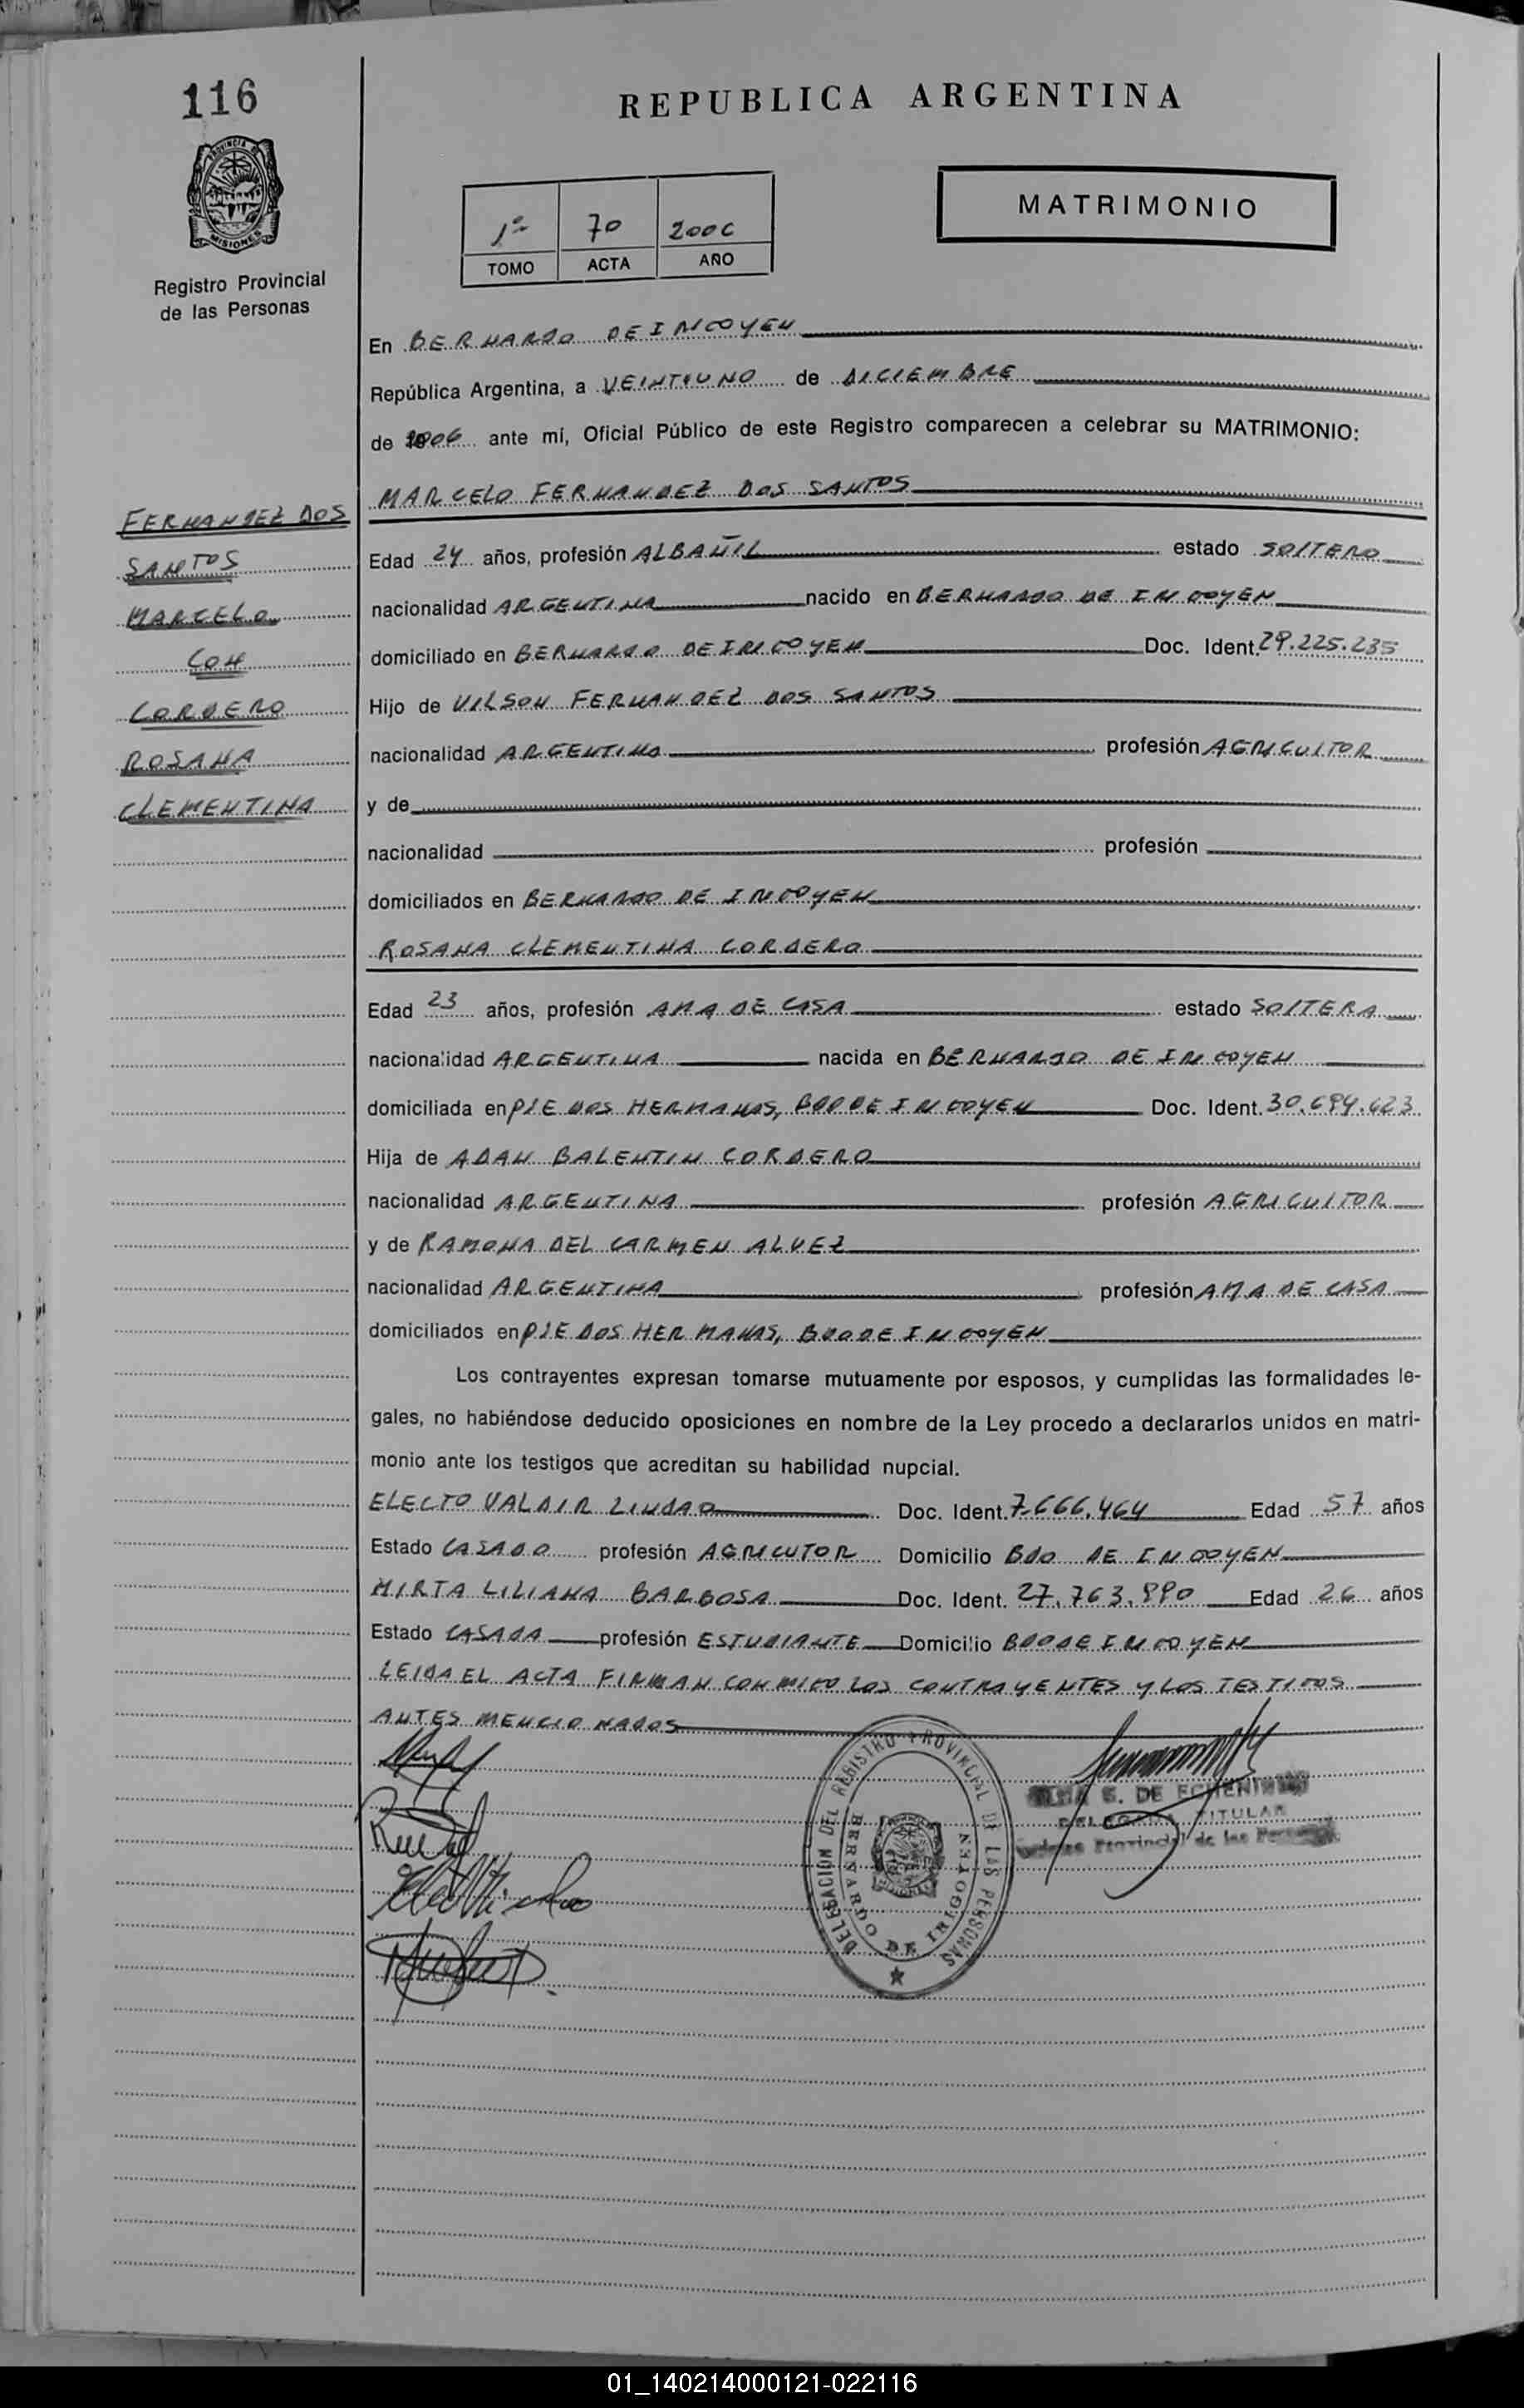 116
REPUBLICA ARGENTINA
PROVINCIA DE
MISIONES
Registro Provincial
de las Personas
1º 70 2006
TOMO ACTA AÑO
MATRIMONIO
En BERNARDO DE IRIGOYEN
República Argentina, a VEINTIUNO de DICIEMBRE
de 2006 ante mí, Oficial Público de este Registro comparecen a celebrar su MATRIMONIO:
MARCELO FERNANDEZ DOS SANTOS
FERNANDEZ DOS
SANTOS
MARCELO
CON
CORDERO
ROSANA
CLEMENTINA
Edad 24 años, profesión ALBAÑIL estado SOLTERO
nacionalidad ARGENTINA nacido en BERNARDO DE IRIGOYEN
domiciliado en BERNARDO DE IRIGOYEN Doc. Ident. 29.225.235
Hijo de VILSON FERNANDEZ DOS SANTOS
nacionalidad ARGENTINA profesión AGRICULTOR
y de
nacionalidad profesión
domiciliados en BERNARDO DE IRIGOYEN
ROSANA CLEMENTINA CORDERO
Edad 23 años, profesión AMA DE CASA estado SOLTERA
nacionalidad ARGENTINA nacida en BERNARDO DE IRIGOYEN
domiciliada en PJE DOS HERMANAS, BDO DE IRIGOYEN Doc. Ident. 30.694.623
Hija de ADAN BALENTIN CORDERO
nacionalidad ARGENTINA profesión AGRICULTOR
y de RAMONA DEL CARMEN ALVEZ
nacionalidad ARGENTINA profesión AMA DE CASA
domiciliados en PJE DOS HERMANAS, BDO DE IRIGOYEN
Los contrayentes expresan tomarse mutuamente por esposos, y cumplidas las formalidades le-
gales, no habiéndose deducido oposiciones en nombre de la Ley procedo a declararlos unidos en matri-
monio ante los testigos que acreditan su habilidad nupcial.
ELECTO VALDIR LINDAO Doc. Ident. 7.666.464 Edad 57 años
Estado CASADO profesión AGRICUTOR Domicilio BDO DE IRIGOYEN
MIRTA LILIANA BARBOSA Doc. Ident. 27.763.890 Edad 26 años
Estado CASADA profesión ESTUDIANTE Domicilio BDO DE IRIGOYEN
LEIDA EL ACTA FIRMAN CONMIGO LOS CONTRAYENTES Y LOS TESTIGOS
ANTES MENCIONADOS
DELEGACION DEL REGISTRO PROVINCIAL DE LAS PERSONAS
BERNARDO DE IRIGOYEN
DELEGADA TITULAR
Provincial de las
01_140214000121-022116